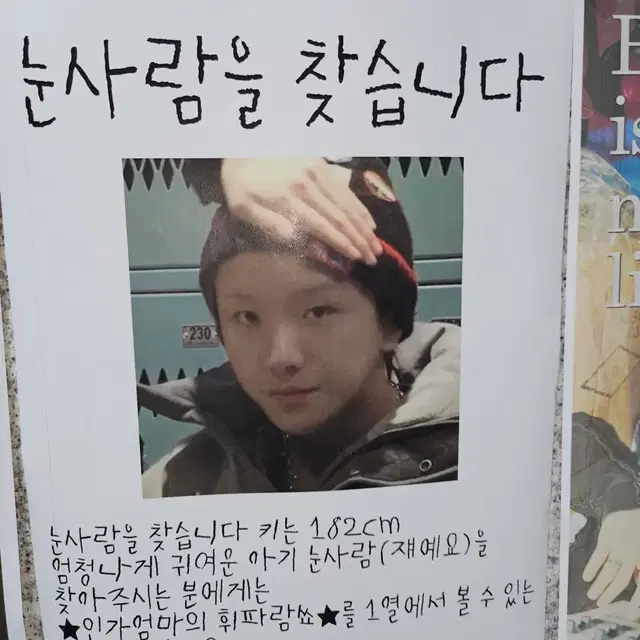 눈사람을 찾습니다
230
눈사람을 찾습니다 키는 182cm
엄청나게 귀여운 아기 눈사람(쟤예요)을
찾아주시는 분에게는
★인가엄마의 휘파람쑈★를 1열에서 볼 수 있는
is
li